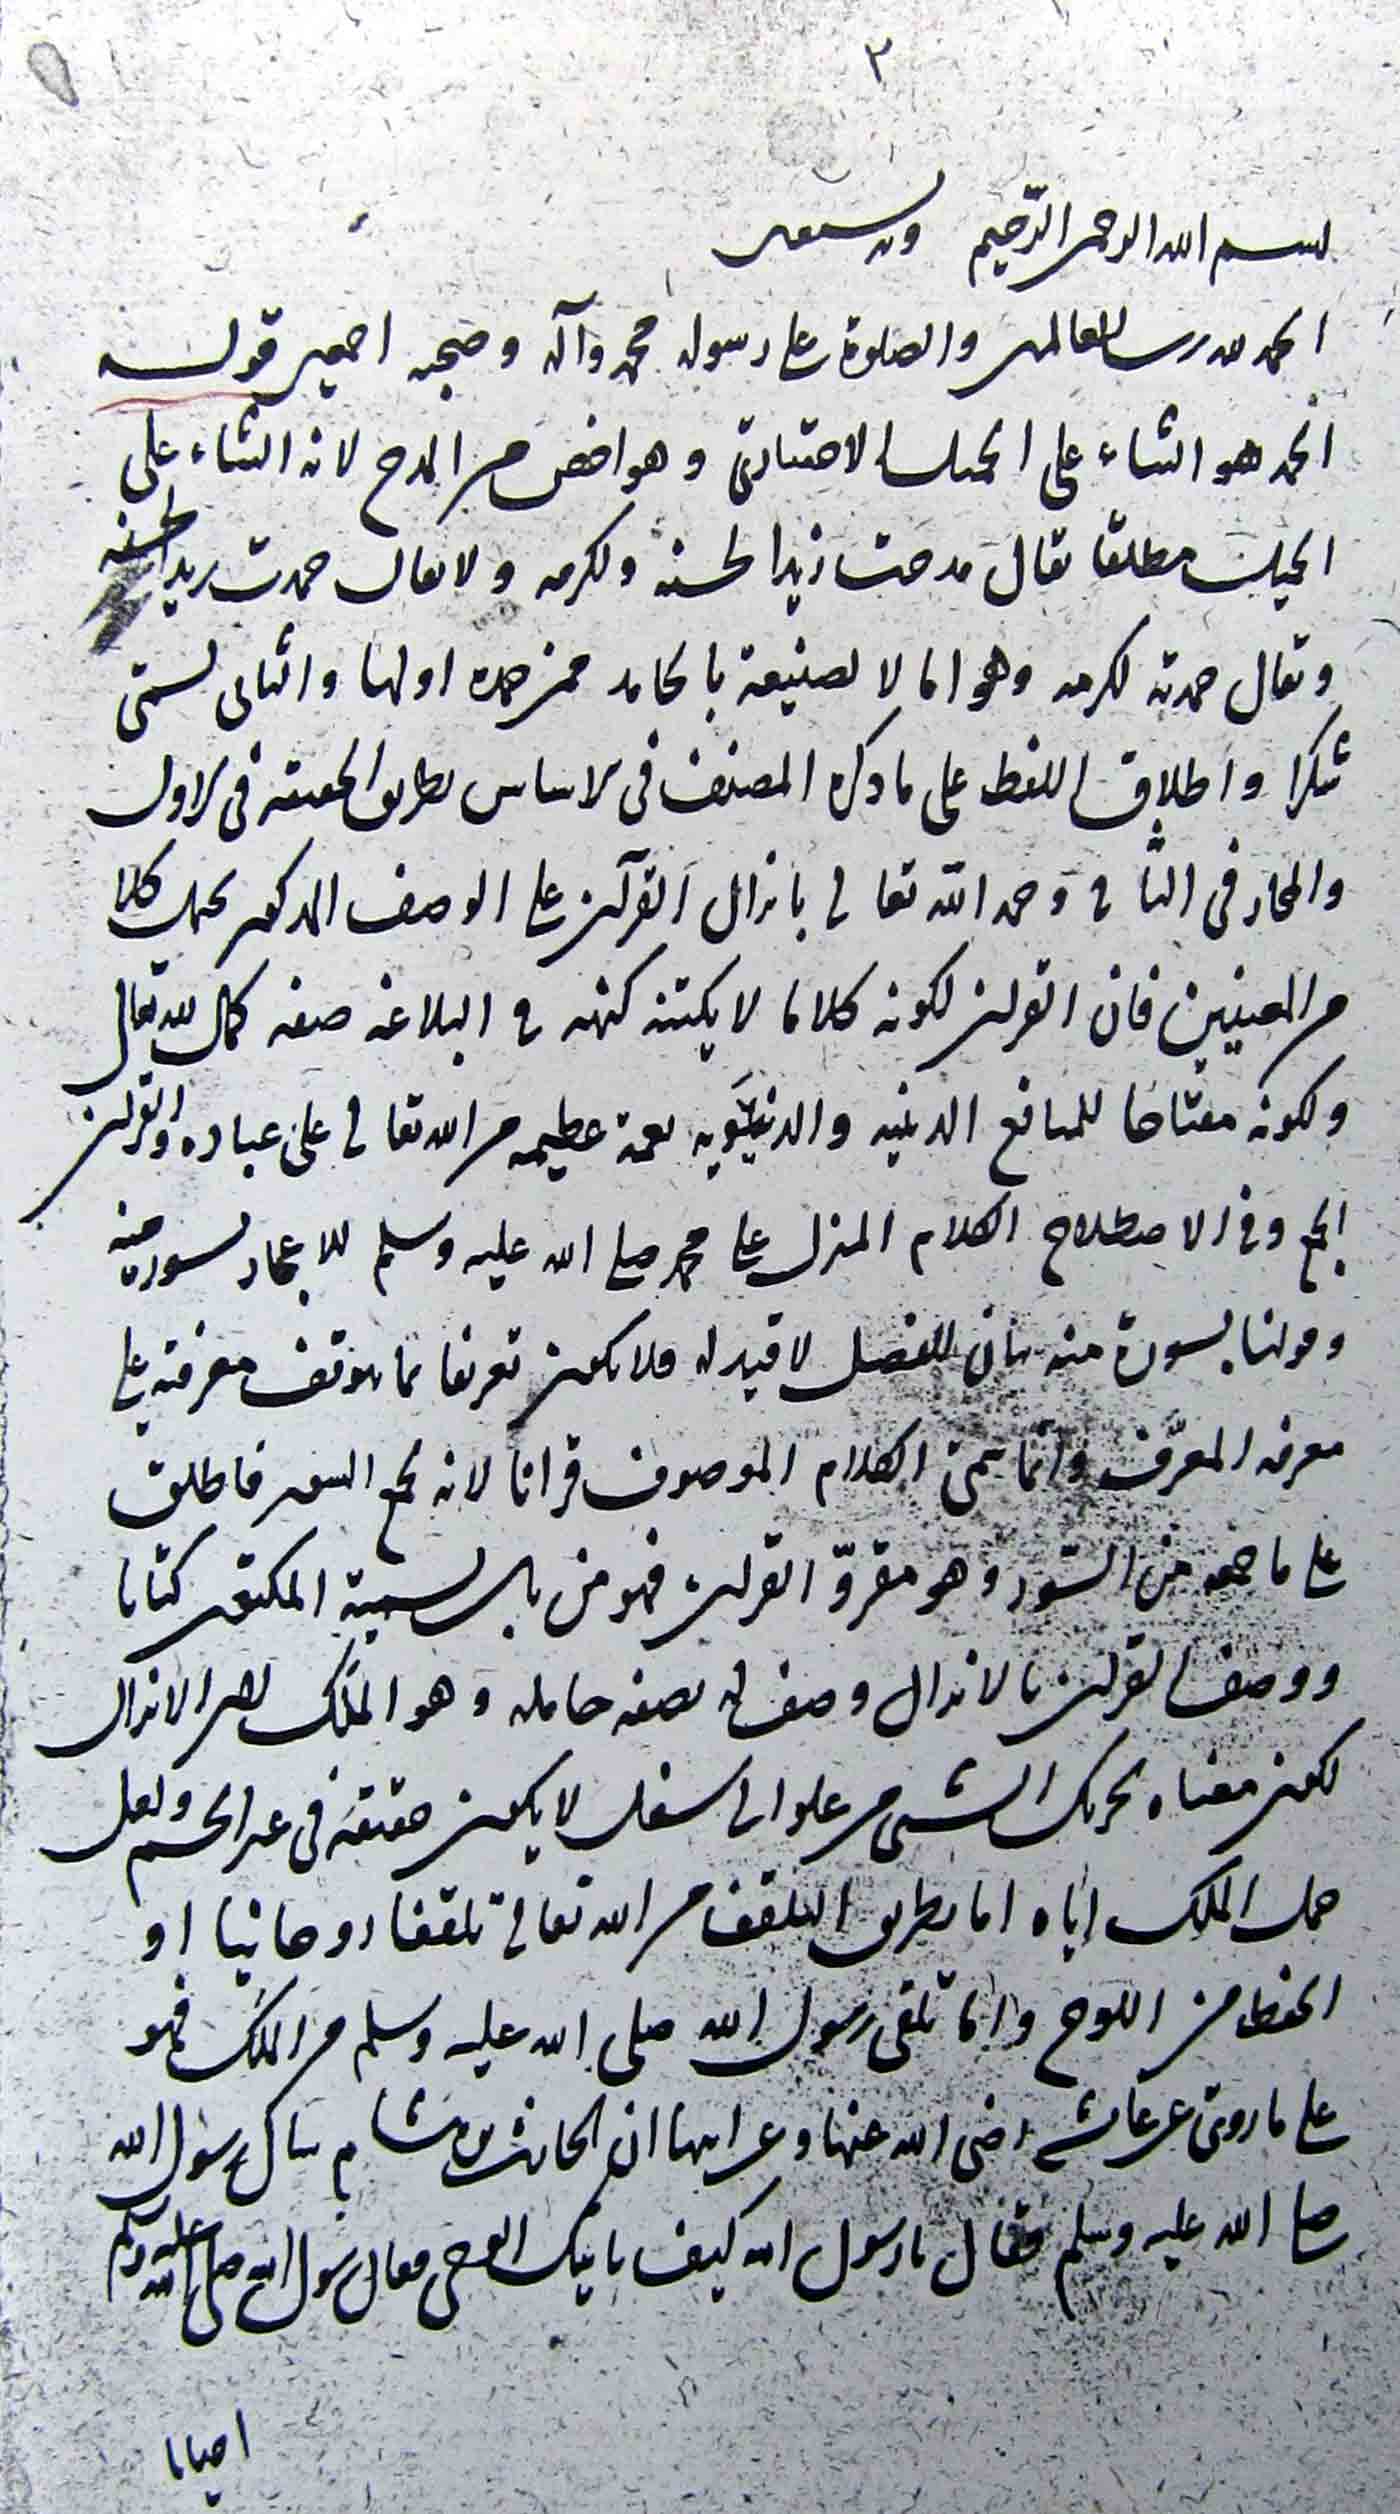 ٢
بسم الله الرحمن الرحيم وبه نستعين
الحمد لله رب العالمين والصلوة على رسوله محمد وآله وصحبه اجمعين قوله
الحمد هو الثناء على الجميل الاختياري وهو اخص من المدح لانه الثناء على
الجميل مطلقا يقال مدحت زيدا لحسنه ولكرمه ولا يقال حمدت زيدا لحسنه
ويقال حمدته لكرمه وهو اما لا لصنيعة بالحامد ممن حمده اولها والثاني يسمى
شكرا واطلاق اللفظ على ما ذكره المصنف في الاساس بطريق الحقيقة في الاول
والمجاز في الثاني وحمد الله تعالى بانزال القرآن على الوصف المذكور يحتمل كلا
من المعنيين فان القرآن لكونه كلاما لا يكتنه كنهه في البلاغة صفة كمال لله تعالى
ولكونه مفتاحا للمنافع الدينيه والدنيويه نعمة عظيمه من الله تعالى على عباده والقرآن
الجمع وفي الاصطلاح الكلام المنزل على محمد صلى الله عليه وسلم للاعجاز بسورة منه
وقولنا بسورة منه بيان للفصل لا قيد له فلا يكون تعريفا بما يتوقف معرفته على
معرفة المعرَّف وانما سمى الكلام الموصوف قرانا لانه يجمع السور فاطلق
على ما جمعه من السّور وهو مقروّ القرآن فهو من باب تسمية المكتوب كتابا
ووصف القرآن بالانزال وصف له بصفة حامله وهو الملَك لان الانزال
لكون معناه تحريك الشئ من علو الى سفل لا يكون حقيقة في غير الجسم ولعل
حمل الملك اياه اما بطريق التلقف من الله تعالى تلقفا روحانيا او
الحفظ من اللوح واما تلقى رسول الله صلى الله عليه وسلم من الملَك فهو
على ما روى عن عائشه رضى الله عنها وعن ابيها ان الحارث بن هشام سال رسول الله
صلى الله عليه وسلم فقال يا رسول الله كيف ياتيك الوحى فقال رسول الله صلى الله عليه وسلم
احيانا